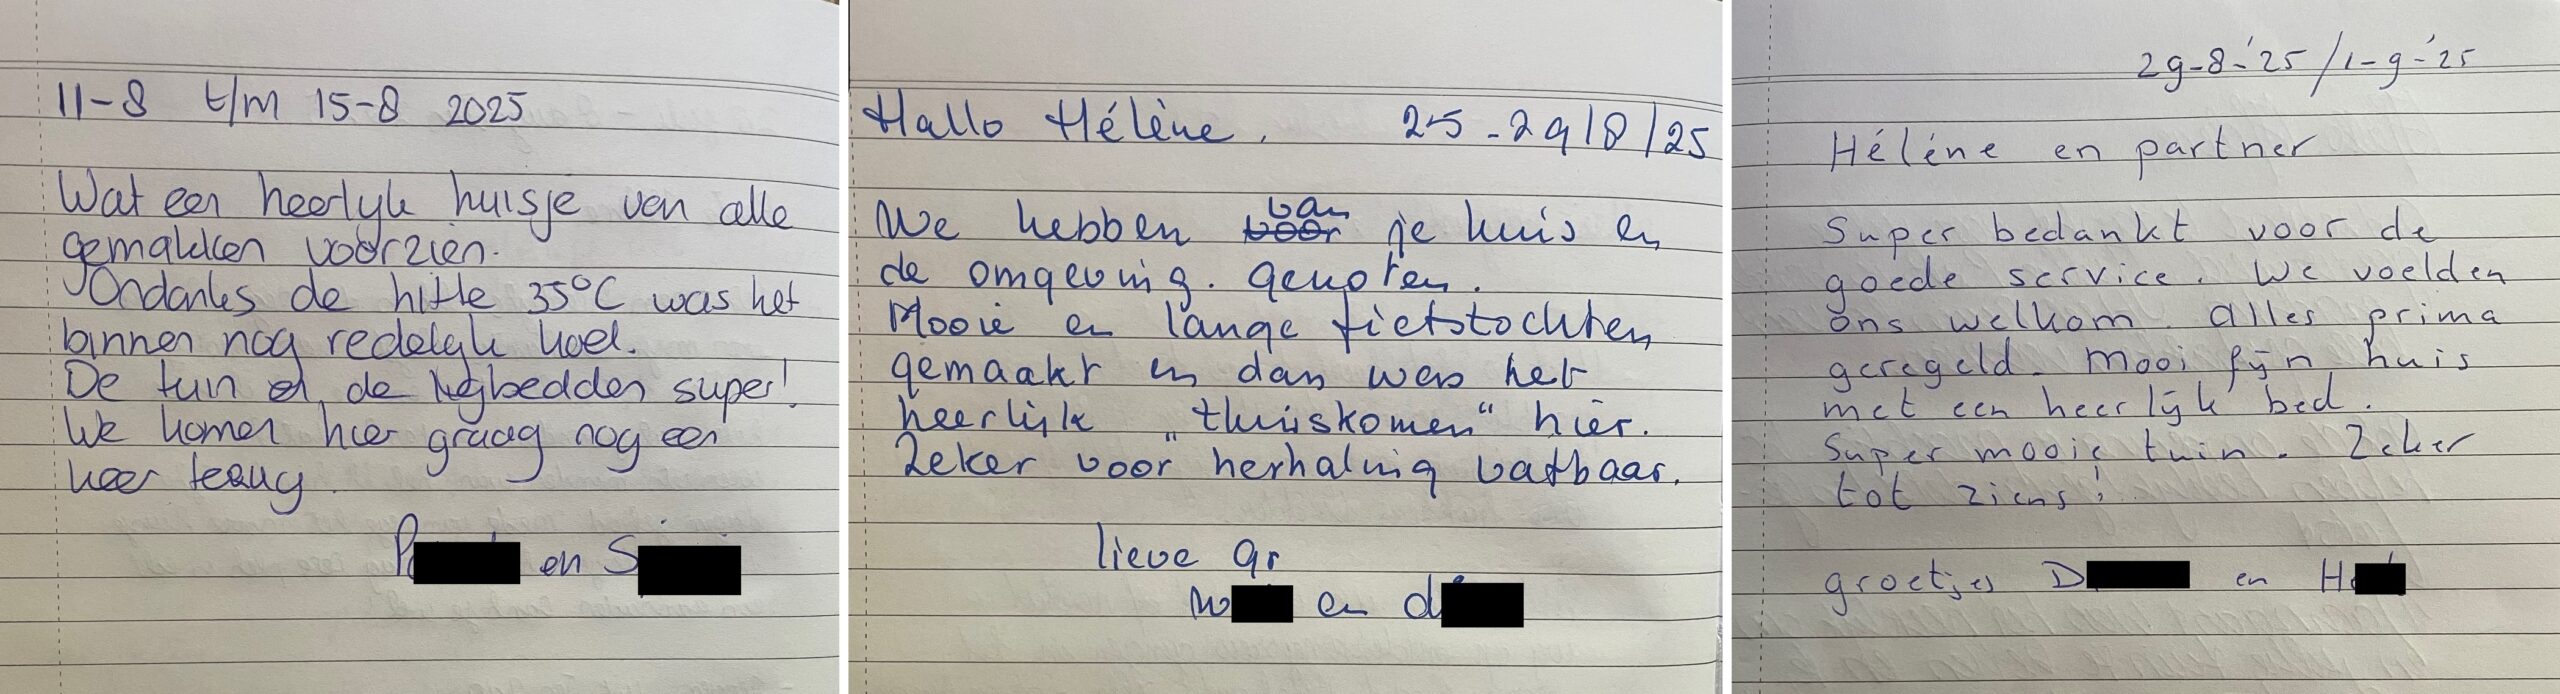 11-8 t/m 15-8 2025
Wat een heerlyk huisje van alle
gemakken voorzien.
Ondanks de hitte 35°C was het
binnen nog redelyk koel.
De tuin en de ligbedden super!
We komen hier graag nog een
keer terug.
en
Hallo Hélène. 25-29/8/25
We hebben van je huis en
de omgeving. genoten.
Mooie en lange fietstochten
gemaakt en dan was het
heerlijk „thuiskomen“ hier.
Zeker voor herhaling vatbaar.
lieve gr
en
29-8-'25 / 1-9-'25
Héléne en partner
Super bedankt voor de
goede service. We voelden
ons welkom. Alles prima
geregeld. Mooi fijn huis
met een heerlijk bed.
Super mooie tuin. Zeker
tot ziens!
groetjes D en H